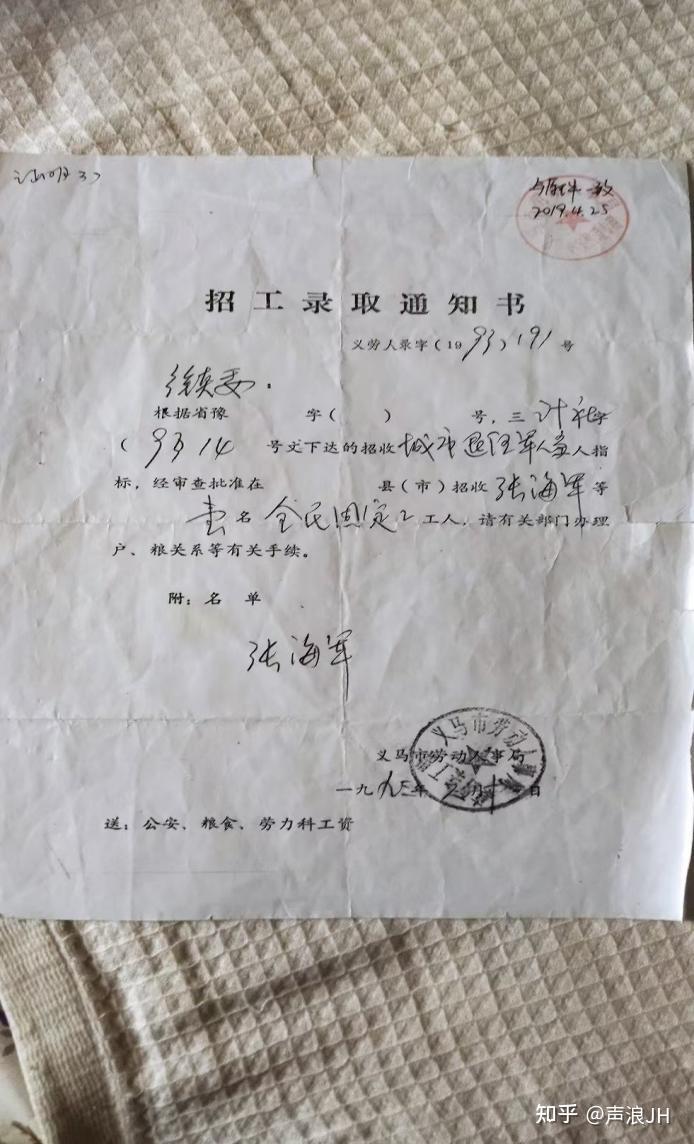 与原件一致
2019.4.25
招工录取通知书
义劳人录字(1993)191号
根据省豫 字( ) 号,三计社字
(93 14 号文下达的招收城市退伍军人 人指
标,经审查批准在 县(市)招收张海军等
壹名全民固定工工人,请有关部门办理
户、粮关系等有关手续。
附:名单
张海军
义马市劳动人事局
一九九三年 月 日
送:公安、粮食、劳力科工资
知乎 @声浪JH